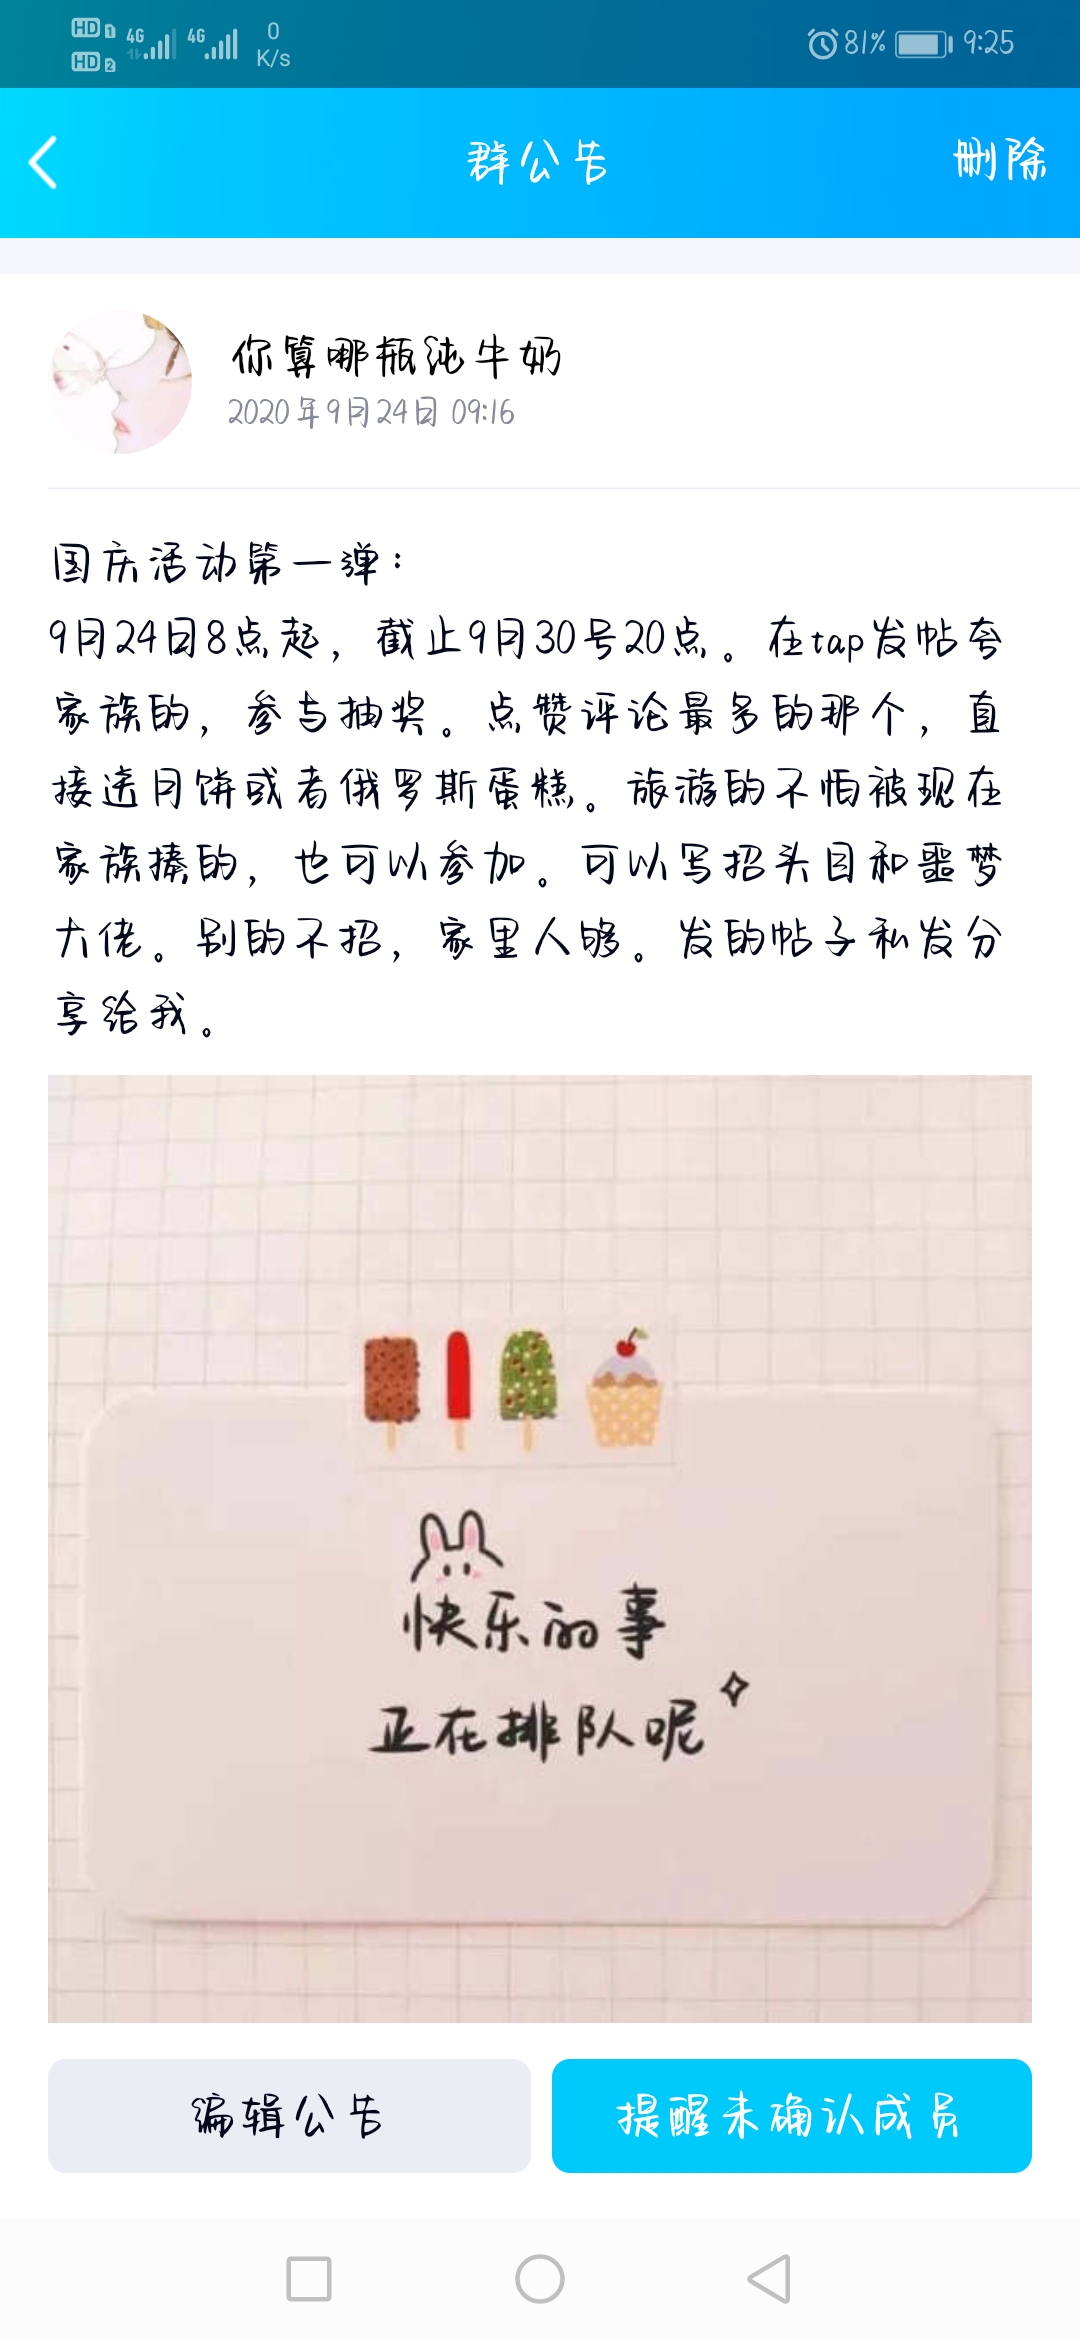 HD 1 4G 4G 0 81% 9:25
HD 2 K/s
群公告 删除
你算哪瓶沌牛奶
2020年9月24日 09:16
国庆活动第一弹：
9月24日8点起，截止9月30号20点。在tap发帖夸
家族的，参与抽奖。点赞评论最多的那个，直
接送月饼或者俄罗斯蛋糕。旅游的不怕被现在
家族揍的，也可以参加。可以写招头目和噩梦
大佬。别的不招，家里人够。发的帖子私发分
享给我。
快乐的事
正在排队呢
编辑公告 提醒未确认成员